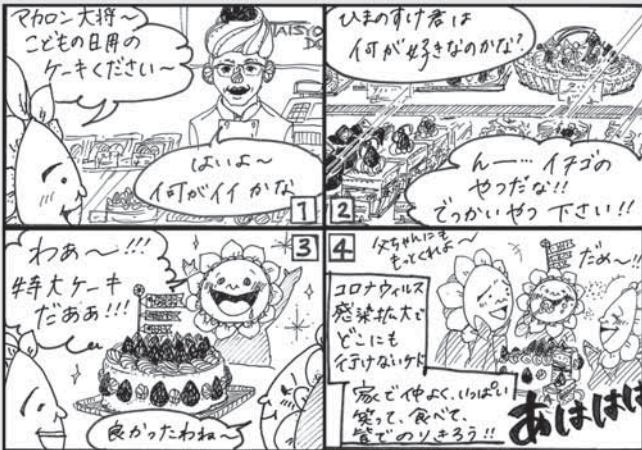 マカロン大将～
こどもの日用の
ケーキください～
TAISYO
DO
はいよ～
何がイイかな
1
ひまのすけ君は
何が好きなのかな?
んー… イチゴの
やつだな!!
でっかいやつ下さい!!
2
3
わぁ～!!!
特大ケーキ
だぁぁ!!!
良かったわね～
4
父ちゃんにも
もっとくれよ～
だめ～!!
コロナウィルス
感染拡大で
どこにも
行けないケド
家で仲よく、いっぱい
笑って、食べて、
皆でのりきろう!!
あははは